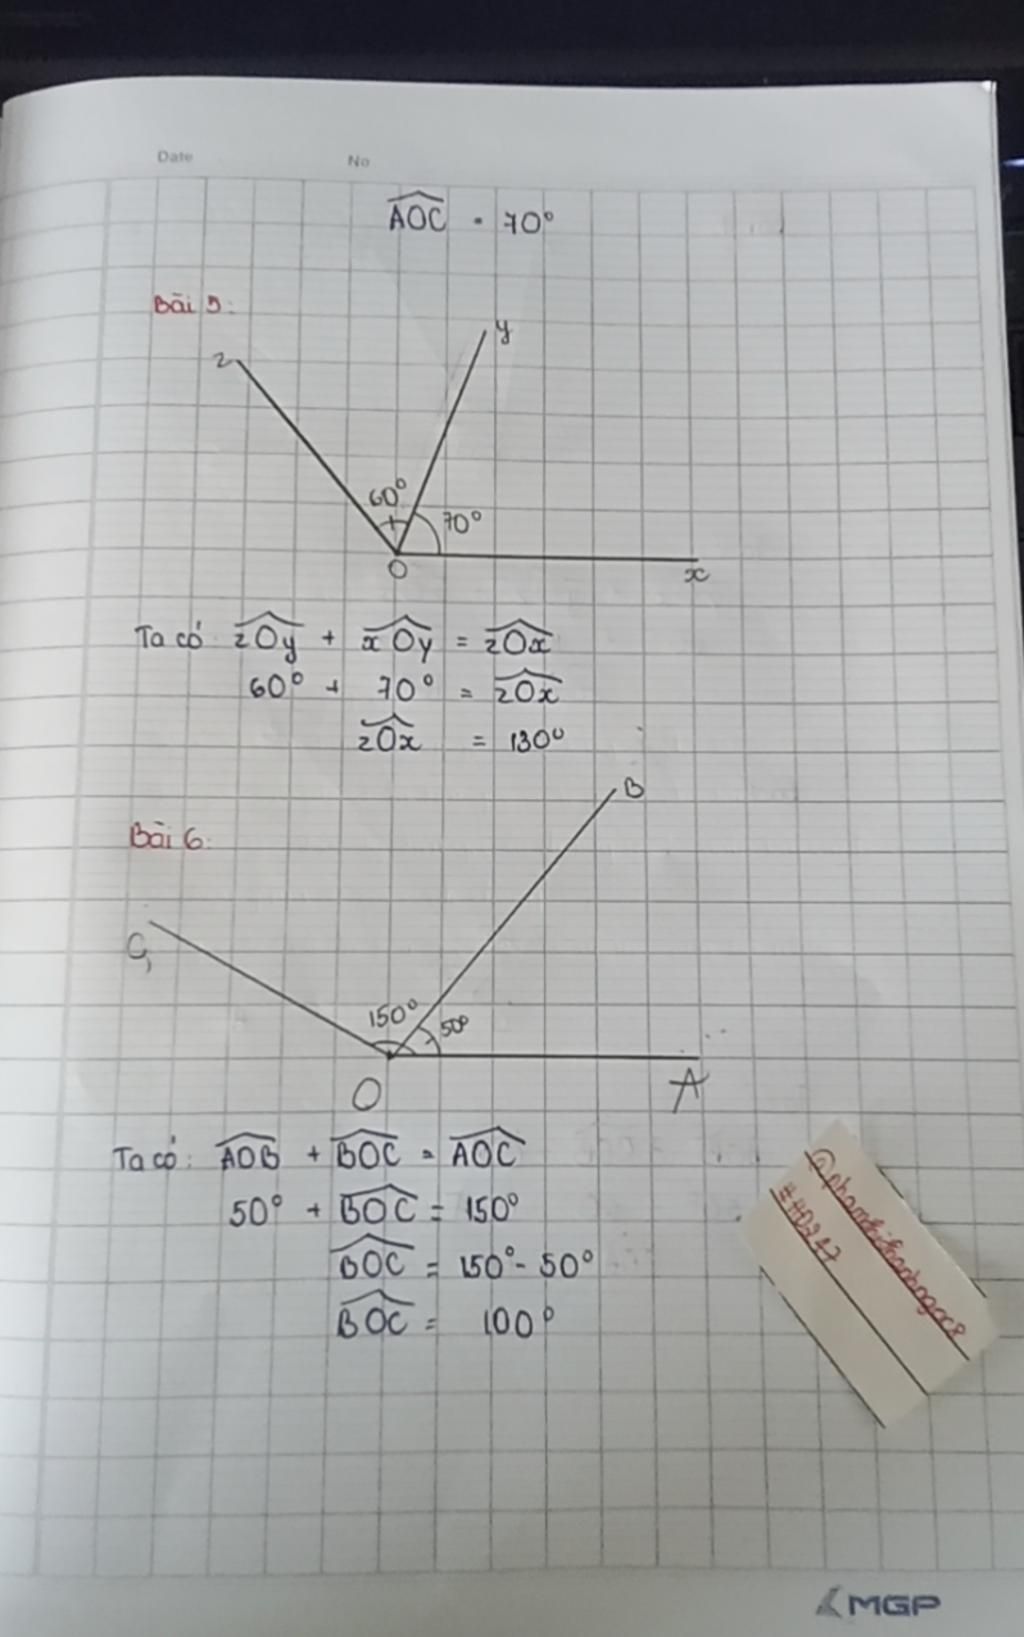 Date No
AOC = 70°
Bài 5:
z
y
60°
70°
O
x
Ta có zOy + xOy = zOx
60° + 70° = zOx
zOx = 130°
B
Bài 6:
C
150°
50°
O
A
Ta có: AOB + BOC = AOC
50° + BOC = 150°
BOC = 150° - 50°
BOC = 100°
MGP